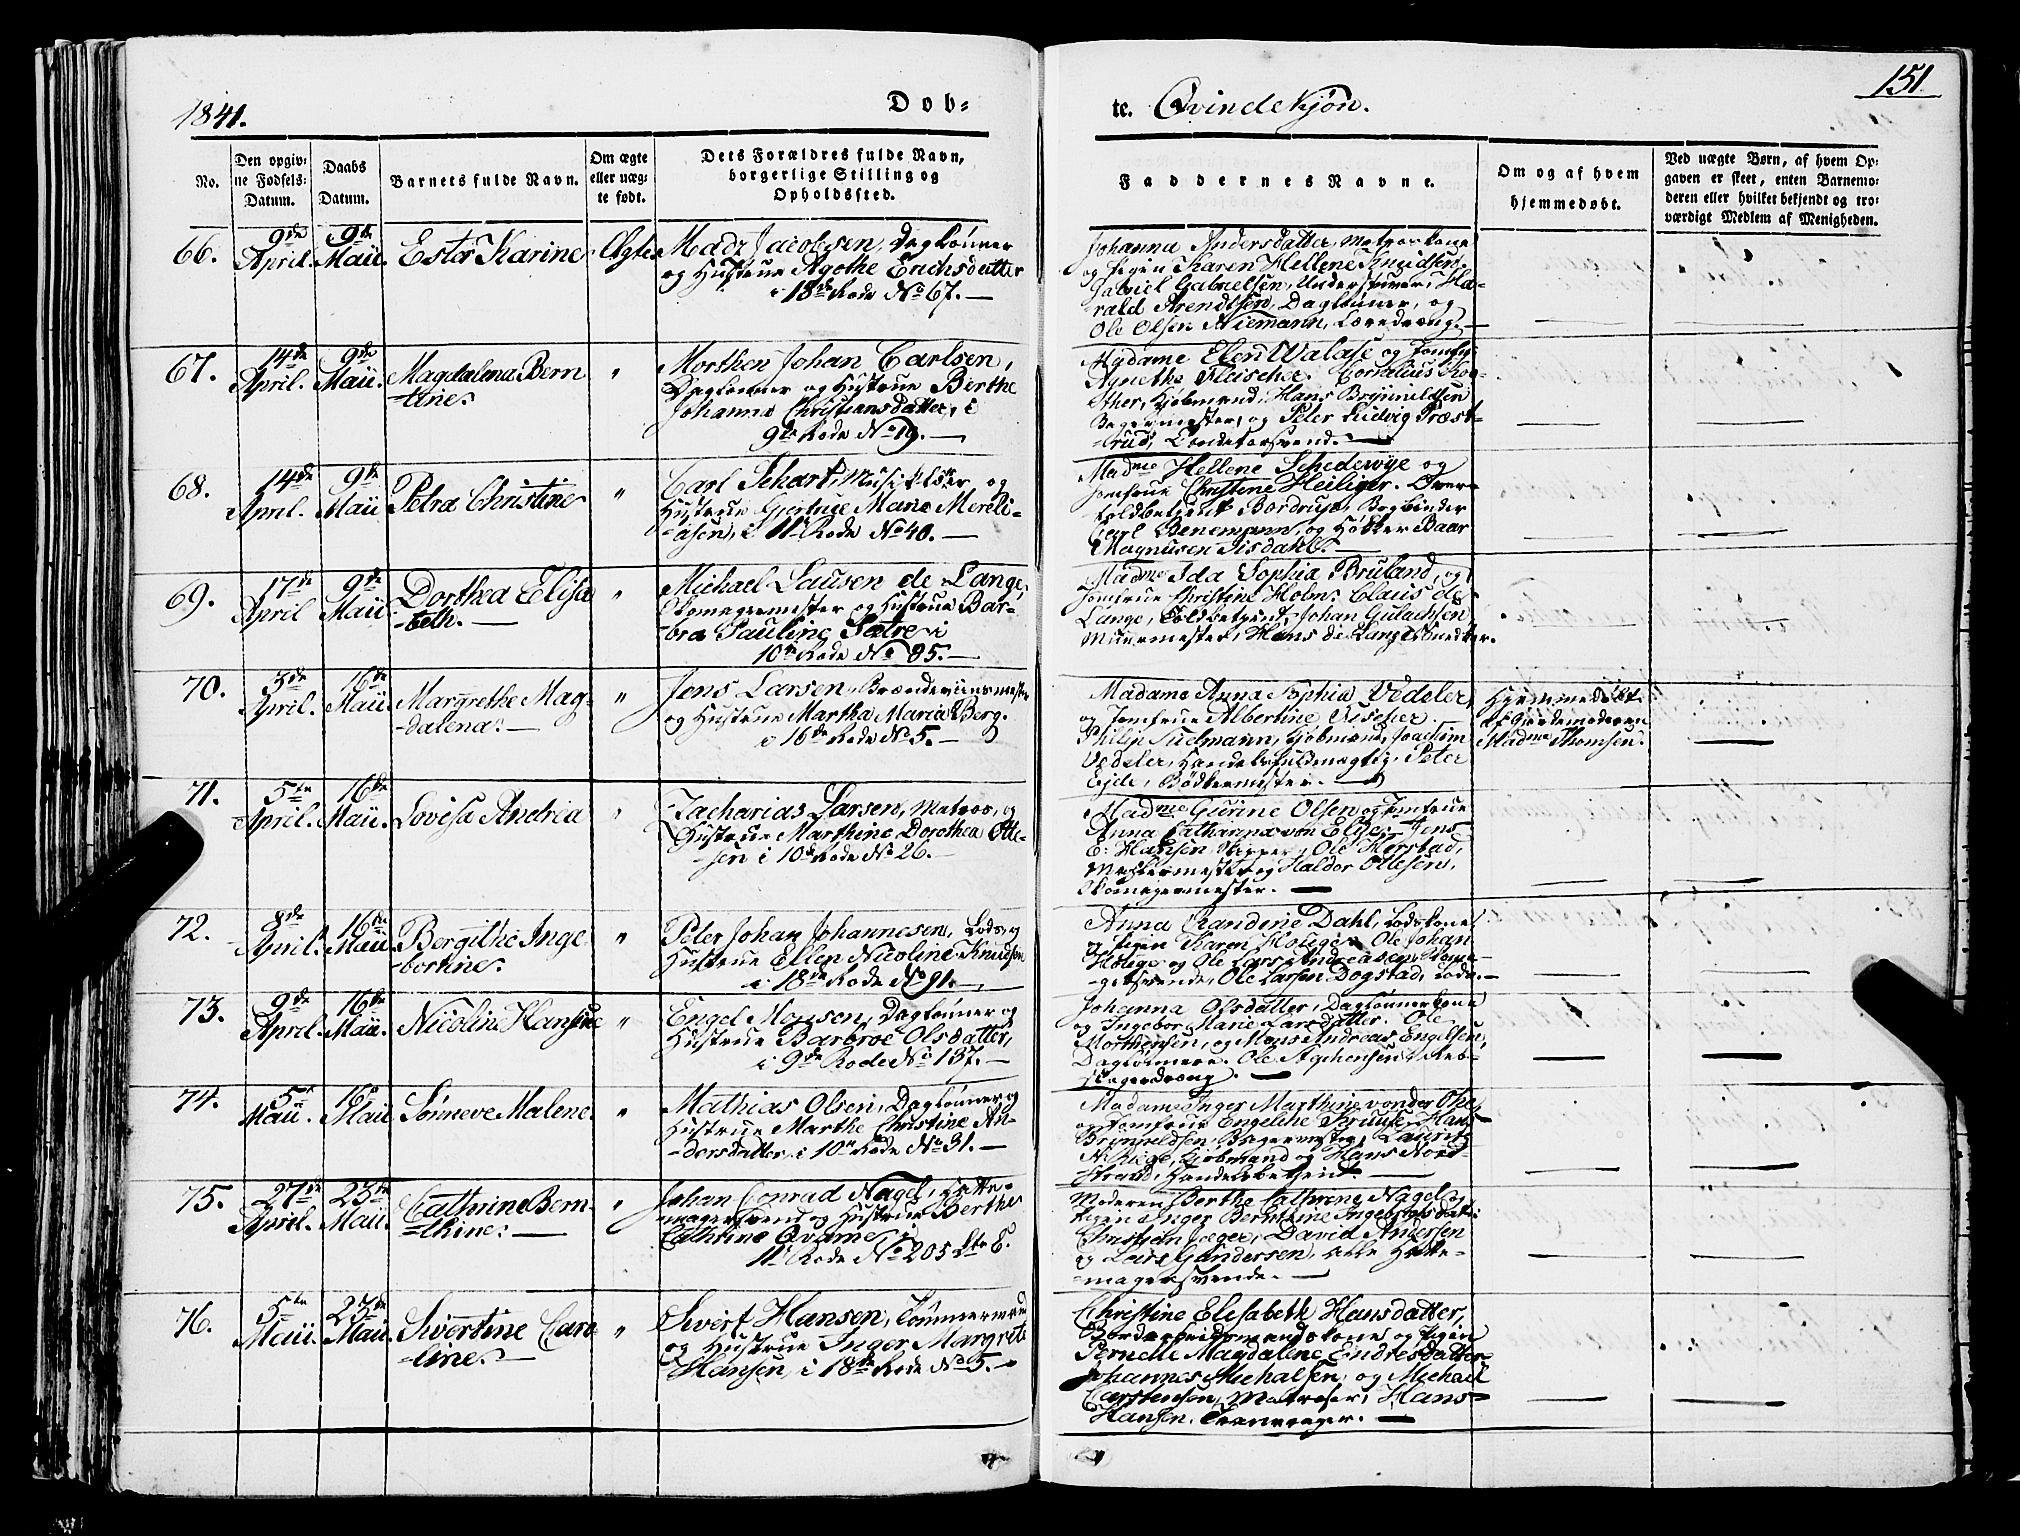 1841.
Dob-
te. Qvindekjøn.
151
No.
Den opgiv-
ne Fødsels-
Datum.
Daabs
Datum.
Barnets fulde Navn.
Om ægte
eller uæg-
te født.
Dets Forældres fulde Navn,
borgerlige Stilling og
Opholdssted.
Faddernes Navne.
Om og af hvem
hjemmedøbt.
Ved uægte Børn, af hvem Op-
gaven er skeet, enten Barnemo-
deren eller hvilket bekjendt og tro-
værdigt Medlem af Menigheden.
66.
9de
April.
9de
Maii.
Ester Karine
Ægte
Mads Jacobsen, Daglønner
og Hustrue Agothe Erichsdatter
i 18de Rode No 67.—
Johanna Andersdatter, Matroskone
og Pigen Karen Hellene Knudsen.
Gabriel Gabrielsen, Understuer, Ha-
rald Arendtsen, Dagløner, og
Ole Olsen Niemann, Læredræng.—
67.
14de
April.
9de
Maii.
Magdalena Bern
-tine.
"
Morthen Johan Carlsen,
Daglønner og Hustrue Berthe
Johanna Christiansdatter, i
9de Rode No 19.—
Madame Elen Walase og Jomfr.
Agnethe Fleischer. Cornelius
Kjøbmand, Hans Brynnildsen
Bagermester, og Peter Ludvig Præst-
-rud,
68.
14de
April.
9de
Maii
Petra Christine
"
Carl Schart, Musikelsker og
Hustrue Gjertrue Marie
-asen, i 11te Rode No 40.—
Madme Hellene Schedewye og
Jomfrue Christine Heiliger. Over-
toldbetjent Bordrup, Bogbinder
Carl Benemann, og Høkker Baar
Magnusen Tisdahl.—
69.
17de
April
9de
Maii.
Dorthea Elisa
-beth.—
"
Michael Lausen de Lange,
Skomagermester og Hustrue Bar-
-bra Pauline Sætre i
10de Rode No 85.—
Madme Ida Sophia Bruland, og
Jomfrue Christine Holm. Claus de
Lange, Toldbetjent, Johan Gulachsen,
Muurmester, Hans de Lange
70.
5de
April.
16de
Maii.
Margrethe Mag-
-dalena.—
"
Jens Larsen, Brændeviinsmester
og Hustrue Martha Maria Berg.
i 16de Rode No 5.—
Madame Anna Sophia Vedeler,
og Jomfrue Albertine Fischer.
Philip Suelmann, Kjøbmand, Joachim
Vedeler, Handelsfuldmægtig, Peter
Eide, Bødkermester.—
Hjemmedøbt
af Gjordemoderen
Madme Thomsen.
71.
5te
April.
16de
Maii.
Lovisa Andrea
"
Zacharias Larsen, Matros, og
Hustrue Marthine Dorothea Olle-
-sen i 10de Rode No 26.—
Madme Gurine Olsen og Jomfrue
Anna Catharina von Elize.— Jens
E: Hansen, Skipper, Ole Herstad,
Muurmester og Haldor Ollesen,
Skomagermester.—
72.
8de
April.
16de
Maii.
Bergithe Inge
-borine.
"
Peter Johan Johannesen, Lods, og
Hustrue Ellen Nicoline Knudsen
i 18de Rode No 91.—
Anna Randine Dahl, Lodskone
og Pigen Karen Holiger. Ole Johan
Holiger og Ole Lars Andreasen, Skoma-
-gersvende, Ole Larsen Dogstad, Lods.—
73.
9de
April.
16de
Maii.
Nicoline Hansine
"
Engel Monsen, Dagløner og
Hustrue Barbroe Olsdatter,
i 9de Rode No 137.—
Johanna Olsdatter, Daglønnerkone
og Ingebor Marie Larsdatter. Ole
Morthensen, og Mons Andreas Engelsen,
Daglønnere. Ole
74.
5te
Maii.
16de
Maii
Sønneve Malene
"
Mathias Olsen, Dagløner og
Hustrue Marthe Christine An-
-dersdatter, i 10de Rode No 31.—
Madame Inger Marthine vonder Ohe,
og Jomfrue Engelche Struuse. Hans
Brynnildsen, Bagermester, Lauritz
Kjøbmand og Hans Nord-
strand, Handelsbetjent.—
75.
27de
April.
23de
Maii.
Cathrine Bern-
-thine.—
"
Johan Conrad Nagel, Hatte-
-magersvend og Hustrue Berthe
Cathrine Qvame, i
11te Rode No 205 Ltr E.
Moderen Berthe Cathrine Nagel og
Pigen Inger Bernthine Ingebrigtsdatter.
Christian Jæger, David Andersen
og Lars Gundersen, alle Hatte-
-magersvende.—
76.
5te
Maii.
23de
Maii.
Sivertine Caro
-line.—
"
Sivert Hansen, Tømmermand
og Hustrue Inger Margrete
Hansen, i 18de Rode No 5.—
Christine Elisabeth Hansdatter,
Bordarbeidsmandskone og Pigen
Pernelle Magdalene Endresdatter
Johannes Michalsen, og Michael
Carstensen, Matroser, Hans
Hansen,